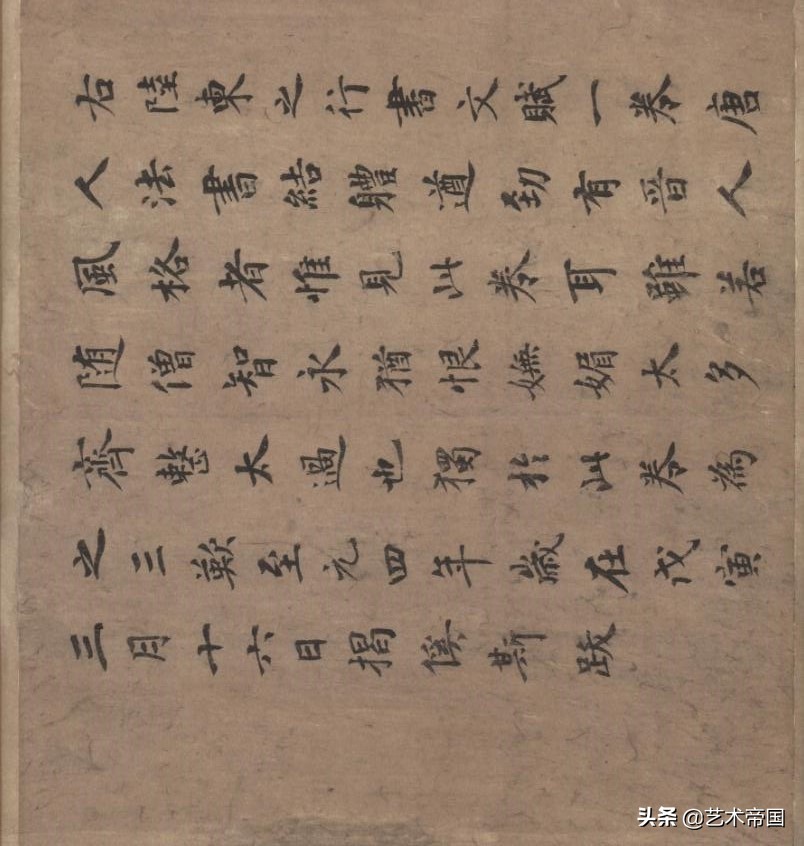 右陸柬之行書文賦一卷唐
人法書結體遒勁有晋人
風格者惟見此卷耳雖若
随僧智永猶恨嫵媚太多
齊整太過也獨於此卷為
之三歎至元四年歲在戊寅
三月十六日揭傒斯跋
头条 @艺术帝国